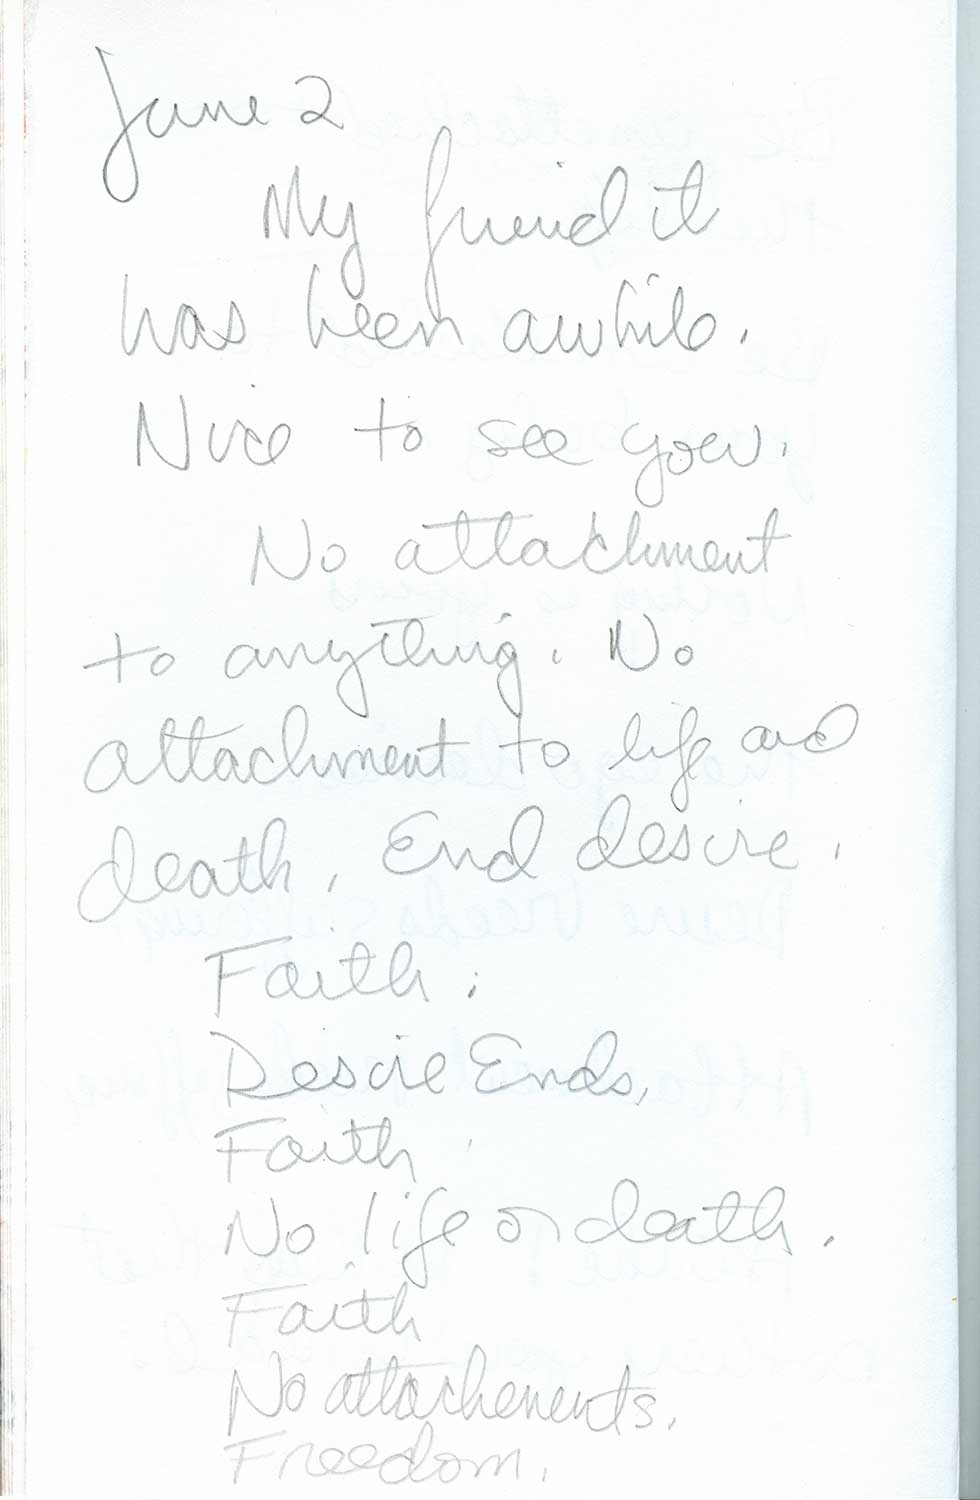 June 2
My friend it
has been awhile.
Nice to see you.
No attachment
to anything. No
attachment to life and
death. End desire.
Faith.
Desire Ends.
Faith
No life or death.
Faith
No attachements.
Freedom.